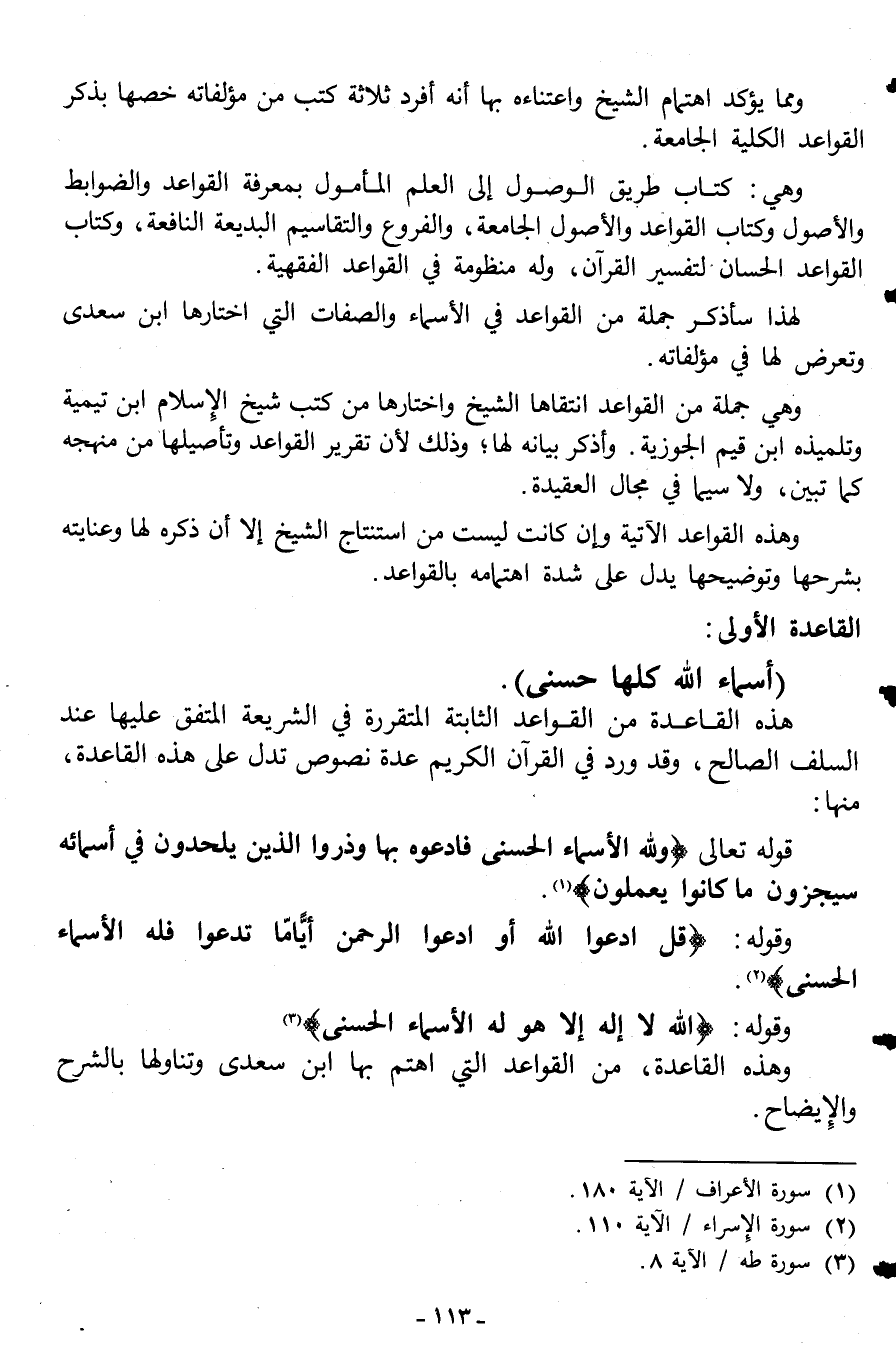 ومما يؤكد اهتمام الشيخ واعتناءه بها أنه أفرد ثلاثة كتب من مؤلفاته خصها بذكر
القواعد الكلية الجامعة.
وهي: كتاب طريق الوصول إلى العلم المأمول بمعرفة القواعد والضوابط
والأصول وكتاب القواعد والأصول الجامعة، والفروع والتقاسيم البديعة النافعة، وكتاب
القواعد الحسان لتفسير القرآن، وله منظومة في القواعد الفقهية.
لهذا سأذكر جملة من القواعد في الأسماء والصفات التي اختارها ابن سعدى
وتعرض لها في مؤلفاته.
وهي جملة من القواعد انتقاها الشيخ واختارها من كتب شيخ الإسلام ابن تيمية
وتلميذه ابن قيم الجوزية. وأذكر بيانه لها؛ وذلك لأن تقرير القواعد وتأصيلها من منهجه
كما تبين، ولا سيما في مجال العقيدة.
وهذه القواعد الآتية وإن كانت ليست من استنتاج الشيخ إلا أن ذكره لها وعنايته
بشرحها وتوضيحها يدل على شدة اهتمامه بالقواعد.
القاعدة الأولى:
(أسماء الله كلها حسنى).
هذه القاعدة من القواعد الثابتة المتقررة في الشريعة المتفق عليها عند
السلف الصالح، وقد ورد في القرآن الكريم عدة نصوص تدل على هذه القاعدة،
منها:
قوله تعالى ﴿ولله الأسماء الحسنى فادعوه بها وذروا الذين يلحدون في أسمائه
سيجزون ما كانوا يعملون﴾(١).
وقوله: ﴿قل ادعوا الله أو ادعوا الرحمن أيًّامّا تدعوا فله الأسماء
الحسنى﴾(٢).
وقوله: ﴿الله لا إله إلا هو له الأسماء الحسنى﴾(٣)
وهذه القاعدة، من القواعد التي اهتم بها ابن سعدى وتناولها بالشرح
والإيضاح.
(١) سورة الأعراف / الآية ١٨٠.
(٢) سورة الإسراء / الآية ١١٠.
(٣) سورة طه / الآية ٨.
- ١١٣ -